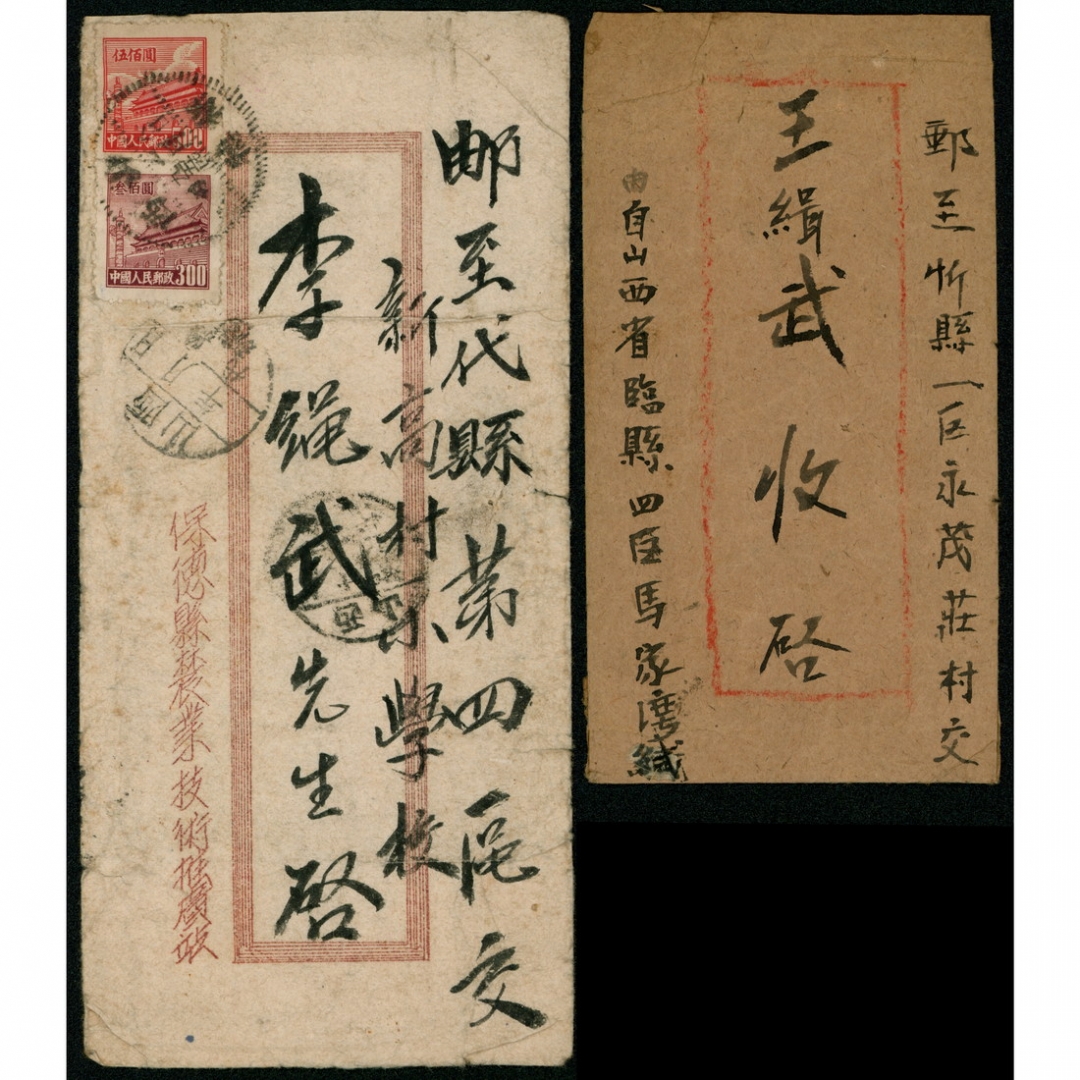 邮至代縣第四区交
新高村高小學校
李绳武先生啓
保德縣農業技術推廣站
伍佰圓
中國人民郵政500
叁佰圓
中國人民郵政300
山西
郵至忻縣一区永茂莊村交
王緝武收啓
由自山西省臨縣四区馬家湾緘